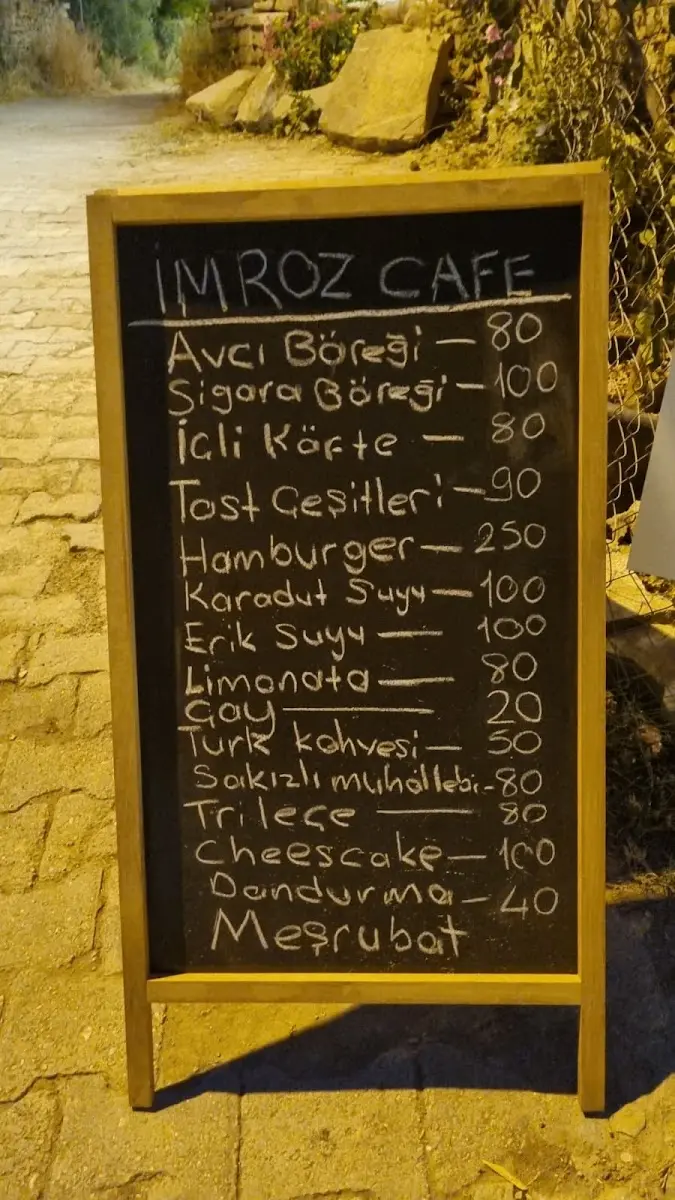 İMROZ CAFE
Avcı Böreği — 80
Sigara Böreği — 100
İçli Köfte — 80
Tost Çeşitleri — 90
Hamburger — 250
Karadut Suyu — 100
Erik Suyu — 100
Limonata — 80
Çay — 20
Türk kahvesi — 50
Sakızlı muhallebi - 80
Trileçe — 80
Cheescake — 100
Dandurma — 40
Meşrubat